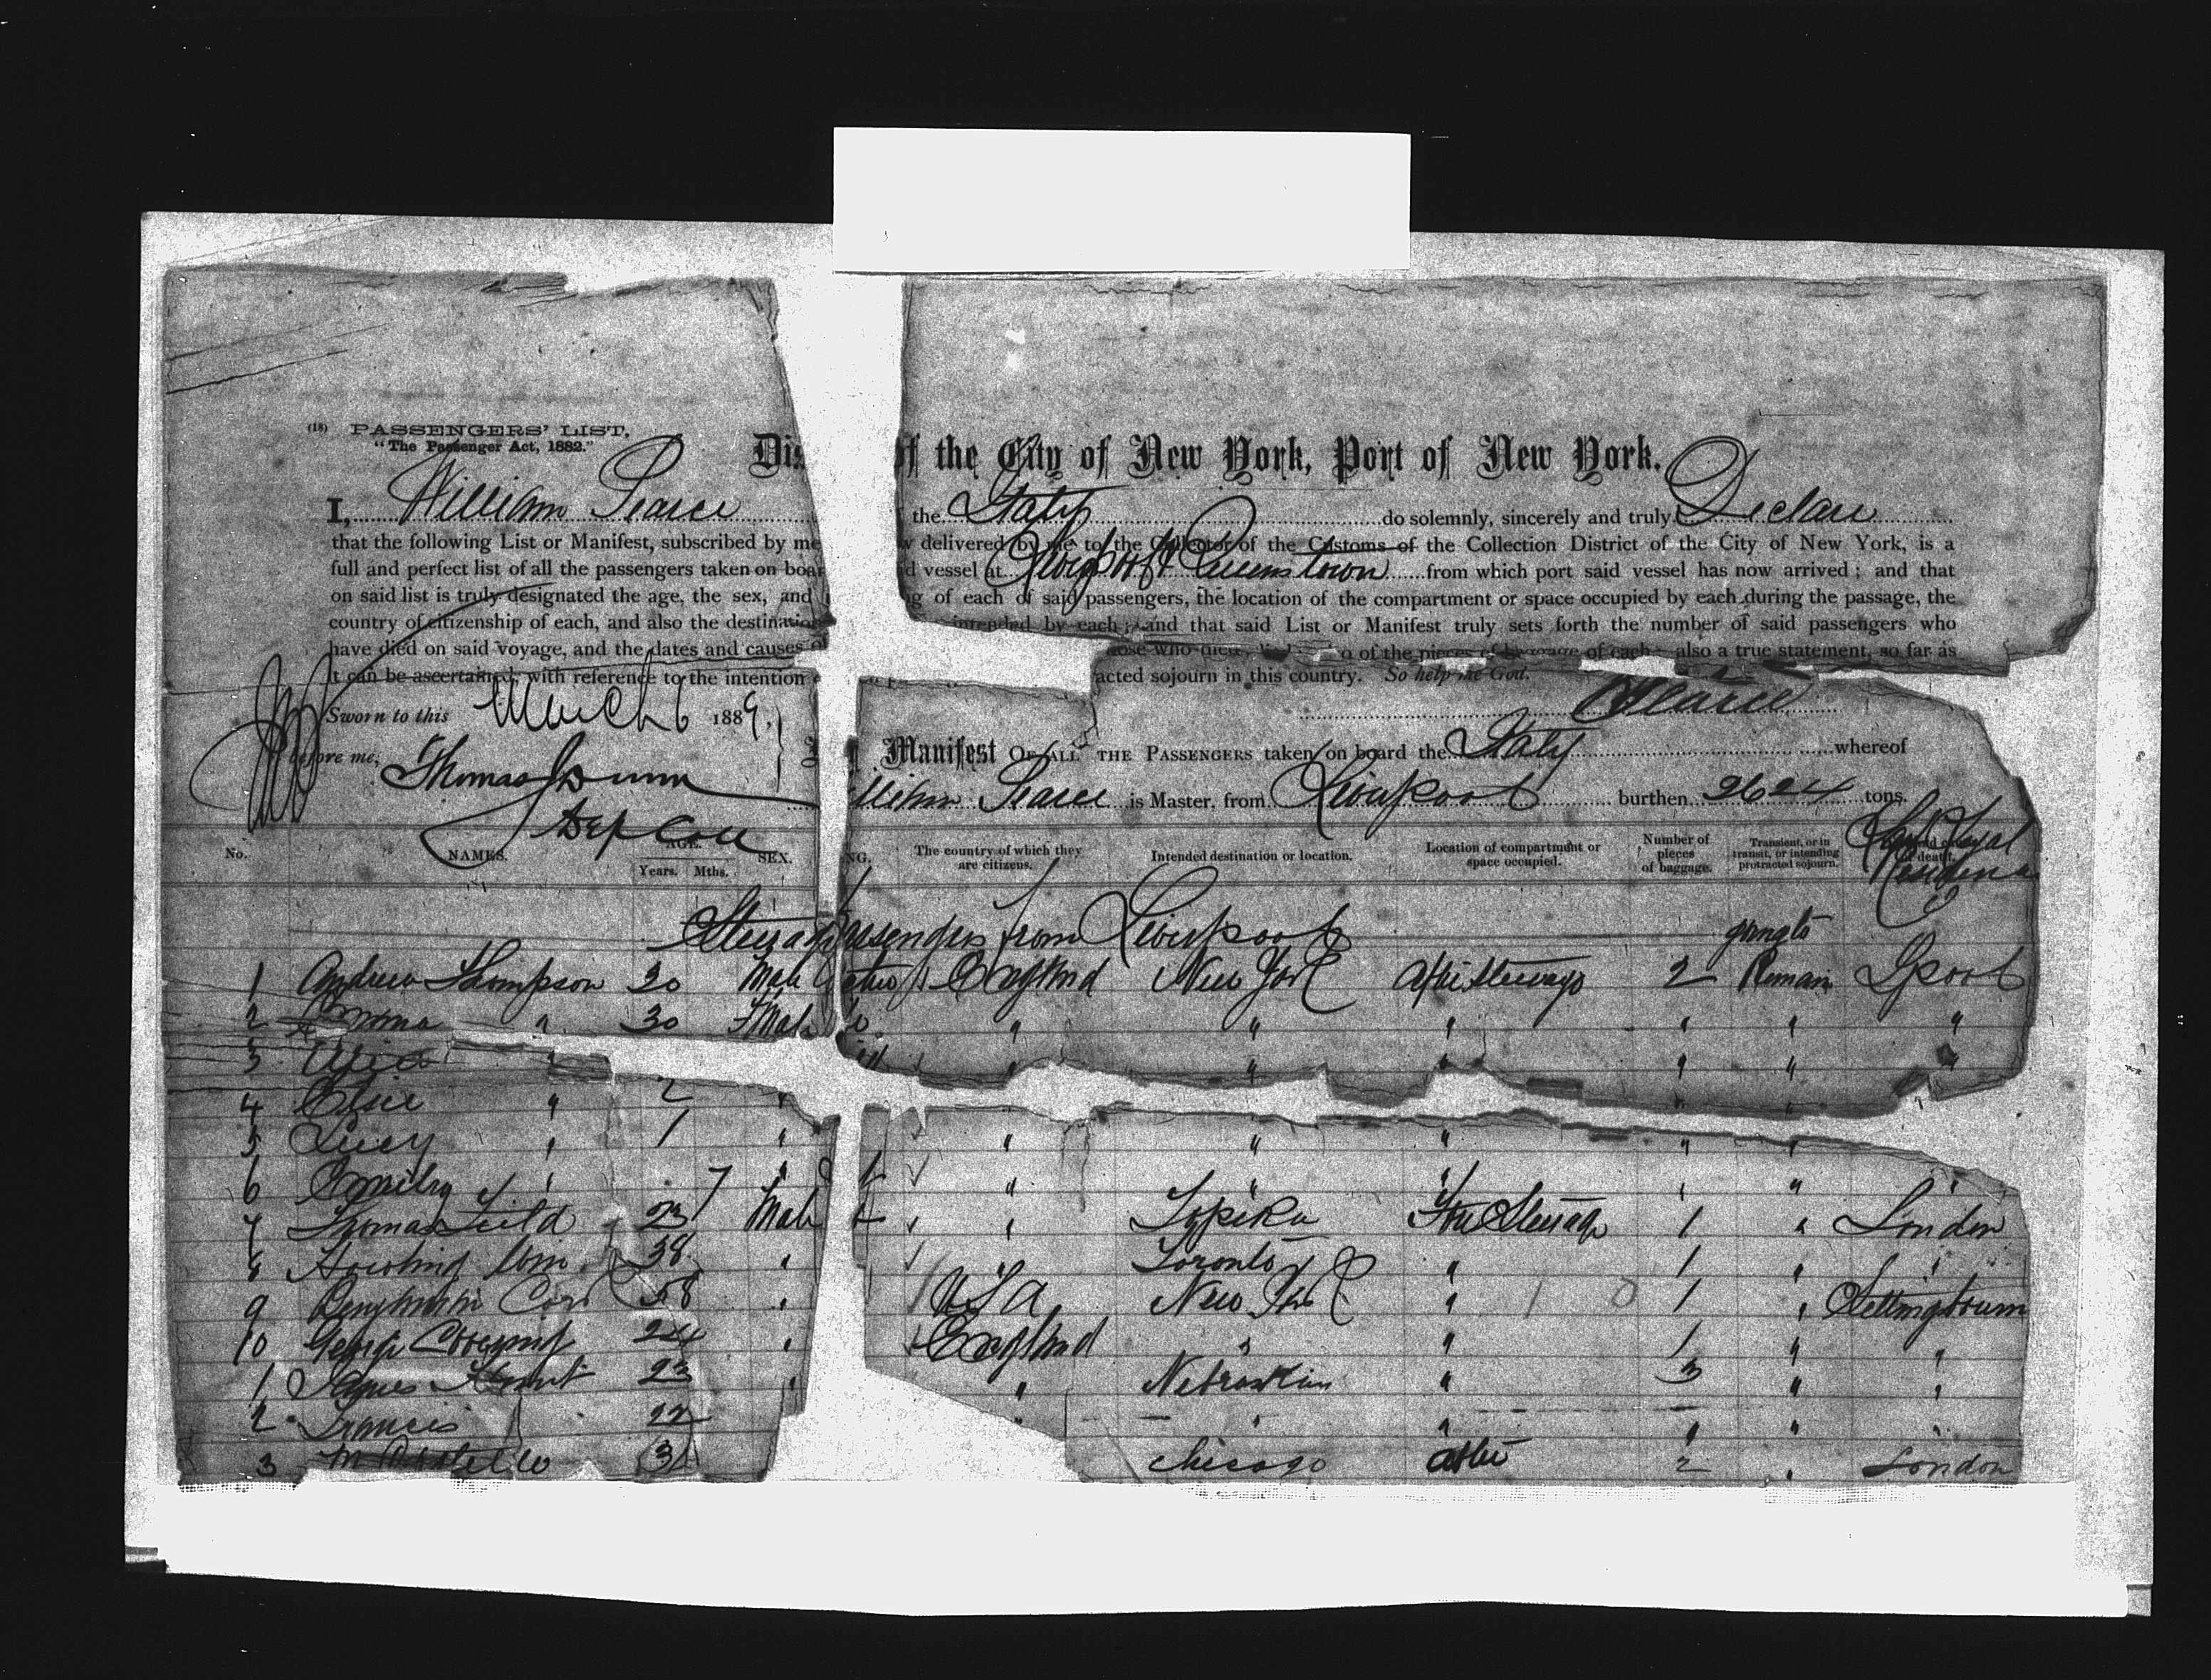 (18) PASSENGERS' LIST,
"The Passenger Act, 1882."
Dis of the City of New York, Port of New York.
I, William Pearce the Italy do solemnly, sincerely and truly Declare
that the following List or Manifest, subscribed by me delivered by me to the Collector of the Customs of the Collection District of the City of New York, is a
full and perfect list of all the passengers taken on boar d vessel at Liverpool & Queenstown from which port said vessel has now arrived; and that
on said list is truly designated the age, the sex, and g of each of said passengers, the location of the compartment or space occupied by each during the passage, the
country of citizenship of each, and also the destination intended by each; and that said List or Manifest truly sets forth the number of said passengers who
have died on said voyage, and the dates and causes of those who died, o of the pieces of baggage of each also a true statement, so far as
it can be ascertained, with reference to the intention acted sojourn in this country. So help me God.
Sworn to this March 6 1889, Pearce
before me, Thomas Dunn
Dep Coll
Manifest OF ALL THE PASSENGERS taken on board the Italy whereof
lliam Pearce is Master, from Liverpool burthen 2624 tons.
No. NAMES. AGE. Years. Mths. SEX. NG. The country of which they are citizens. Intended destination or location. Location of compartment or space occupied. Number of pieces of baggage. Transient, or in transit, or intending protracted sojourn. death. Last Legal Residence
Steerage Passengers from Liverpool
going to
1 Andrew Thompson 30 Male England New York After Steerage 2 Remain Lpool
2 Emma " 30 FMale " " " " " "
3 Alice " " " " " " "
4 Elsie " 2 "
5 Lucy " 1 " " " " " "
6 Emily " 7 " " " " " " "
7 Thomas Field 23 Male " Topeka Fore Steerage 1 " London
8 Howling Wm 38 " " Toronto " 1 " "
9 Benjamin 58 " USA New York " 1 " Settingbourn
10 George 24 " England " " 1 " "
1 James 23 " " Nebraska " 3 " "
2 Francis 22 " " " " " "
3 M Costello 31 Chicago After 2 " London